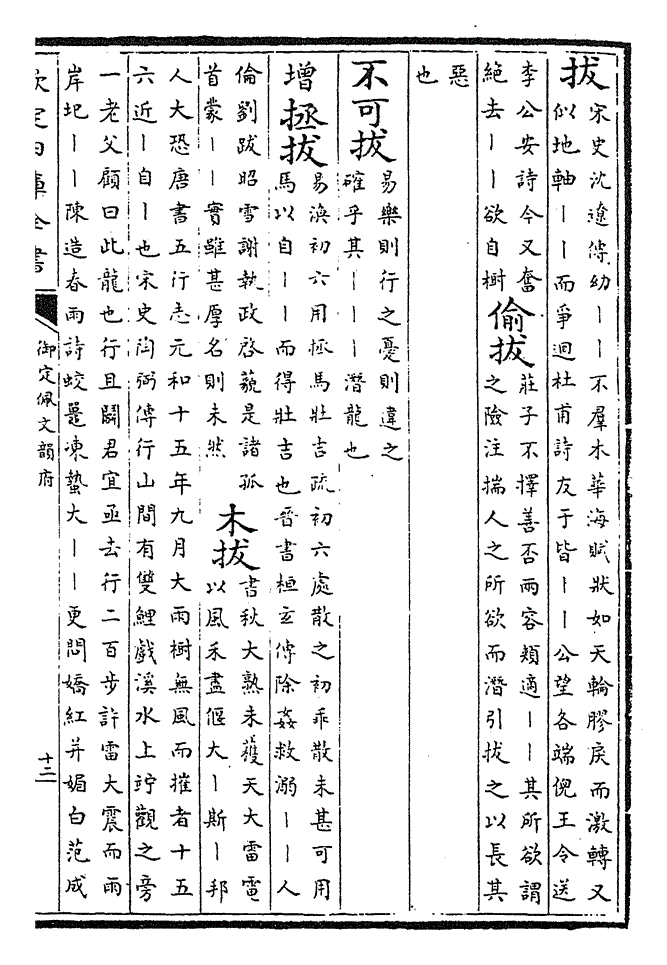 拔宋史沈遼傳幼丨丨不羣木華海賦狀如天輪膠戾而激轉又
似地軸丨丨而爭迴杜甫詩友于皆丨丨公望各端倪王令送
李公安詩今又奮
絕去丨丨欲自樹
偷拔莊子不擇善否兩容頰適丨丨其所欲謂
之險注揣人之所欲而潛引拔之以長其
惡
也
不可拔易樂則行之憂則違之
確乎其丨丨丨潛龍也
增拯拔易渙初六用拯馬壯吉疏初六處散之初乖散未甚可用
馬以自丨丨而得壯吉也晉書桓玄傳除姦救溺丨丨人
倫劉跋昭雪謝執政啓藐是諸孤
首蒙丨丨實雖甚厚名則未然
木拔書秋大熟未穫天大雷電
以風禾盡偃大丨斯丨邦
人大恐唐書五行志元和十五年九月大雨樹無風而摧者十五
六近丨自丨也宋史陶弼傳行山間有雙鯉戲溪水上竚觀之旁
一老父顧曰此龍也行且鬭君宜亟去行二百步許雷大震而雨
岸圮丨丨陳造春雨詩蛟鼉凍蟄大丨丨更問嬌紅幷媚白范成
欽定四庫全書
御定佩文韻府
十二